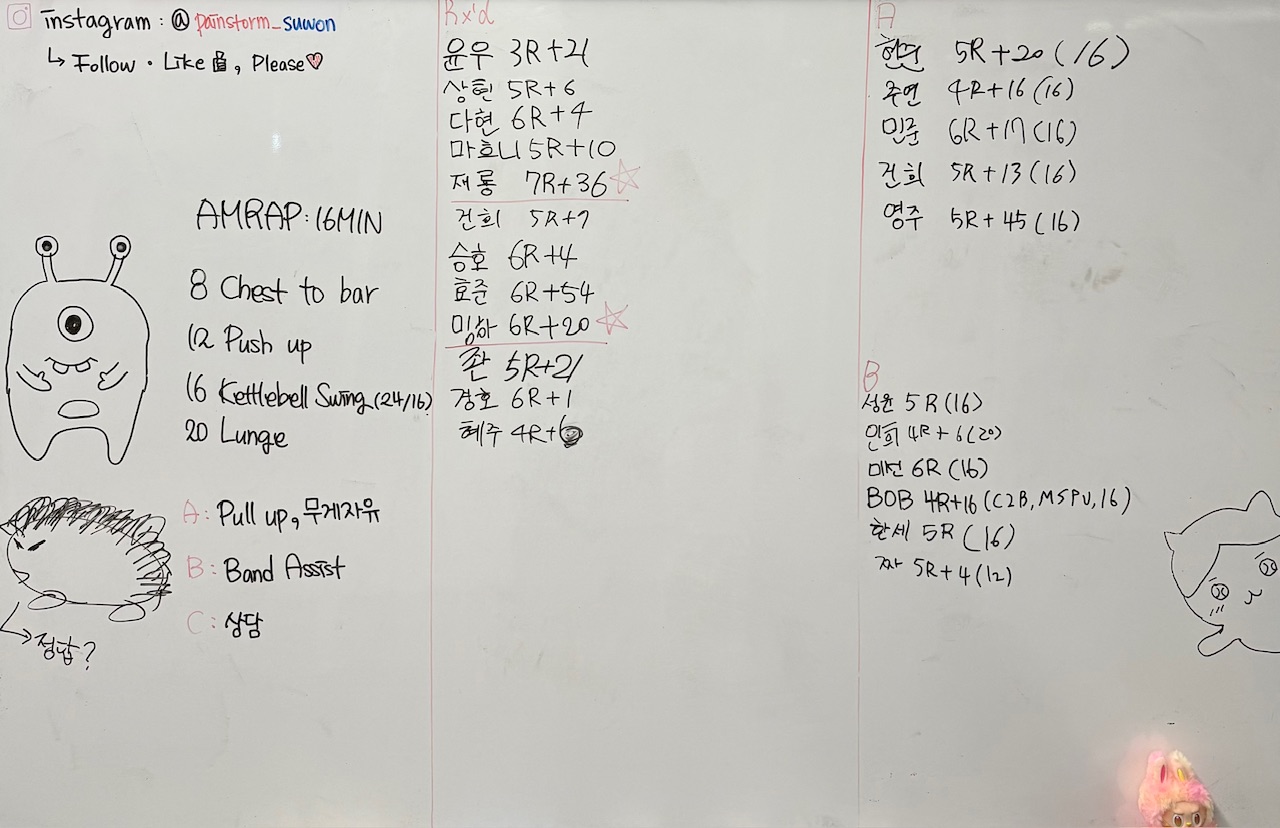 instagram : @ painstorm_suwon
↳ Follow · Like, Please♡
AMRAP : 16MIN
8 Chest to bar
12 Push up
16 Kettlebell Swing (24/16)
20 Lunge
A : Pull up, 무게자유
B : Band Assist
C : 상담
↳ 정답?
Rx'd
윤우 3R+21
상현 5R+6
다현 6R+4
마호니 5R+10
재룡 7R+36 ☆
건희 5R+7
승호 6R+4
효준 6R+54
6R+20 ☆
죤 5R+21
경호 6R+1
혜주 4R+
A
5R+20 (16)
주연 4R+16 (16)
민준 6R+17 (16)
건희 5R+13 (16)
영주 5R+45 (16)
B
성윤 5R (16)
인희 4R+6 (20)
미선 6R (16)
BOB 4R+16 (C2B, MSPU, 16)
한세 5R (16)
짜 5R+4 (12)